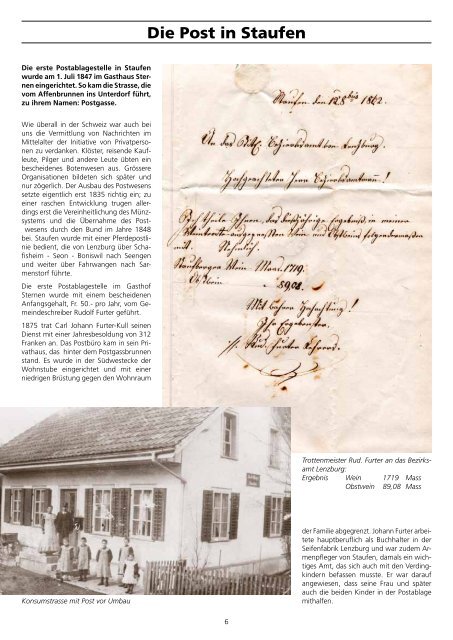 Die Post in Staufen
Die erste Postablagestelle in Staufen
wurde am 1. Juli 1847 im Gasthaus Ster-
nen eingerichtet. So kam die Strasse, die
vom Affenbrunnen ins Unterdorf führt,
zu ihrem Namen: Postgasse.
Wie überall in der Schweiz war auch bei
uns die Vermittlung von Nachrichten im
Mittelalter der Initiative von Privatperso-
nen zu verdanken. Klöster, reisende Kauf-
leute, Pilger und andere Leute übten ein
bescheidenes Botenwesen aus. Grössere
Organisationen bildeten sich später und
nur zögerlich. Der Ausbau des Postwesens
setzte eigentlich erst 1835 richtig ein; zu
einer raschen Entwicklung trugen aller-
dings erst die Vereinheitlichung des Münz-
systems und die Übernahme des Post-
wesens durch den Bund im Jahre 1848
bei. Staufen wurde mit einer Pferdepostli-
nie bedient, die von Lenzburg über Scha-
fisheim - Seon - Boniswil nach Seengen
und weiter über Fahrwangen nach Sar-
menstorf führte.
Die erste Postablagestelle im Gasthof
Sternen wurde mit einem bescheidenen
Anfangsgehalt, Fr. 50.- pro Jahr, vom Ge-
meindeschreiber Rudolf Furter geführt.
1875 trat Carl Johann Furter-Kull seinen
Dienst mit einer Jahresbesoldung von 312
Franken an. Das Postbüro kam in sein Pri-
vathaus, das hinter dem Postgassbrunnen
stand. Es wurde in der Südwestecke der
Wohnstube eingerichtet und mit einer
niedrigen Brüstung gegen den Wohnraum
Staufen den 1862.
An das Bezirksamt Lenzburg.
Wein Maas. 1719.
Obstwein 8908.
Mit Hochachtung!
Rud. Furter
Trottenmeister Rud. Furter an das Bezirks-
amt Lenzburg:
Ergebnis Wein 1719 Mass
Obstwein 89,08 Mass
der Familie abgegrenzt. Johann Furter arbei-
tete hauptberuflich als Buchhalter in der
Seifenfabrik Lenzburg und war zudem Ar-
menpfleger von Staufen, damals ein wich-
tiges Amt, das sich auch mit den Verding-
kindern befassen musste. Er war darauf
angewiesen, dass seine Frau und später
auch die beiden Kinder in der Postablage
mithalfen.
Konsumstrasse mit Post vor Umbau
6